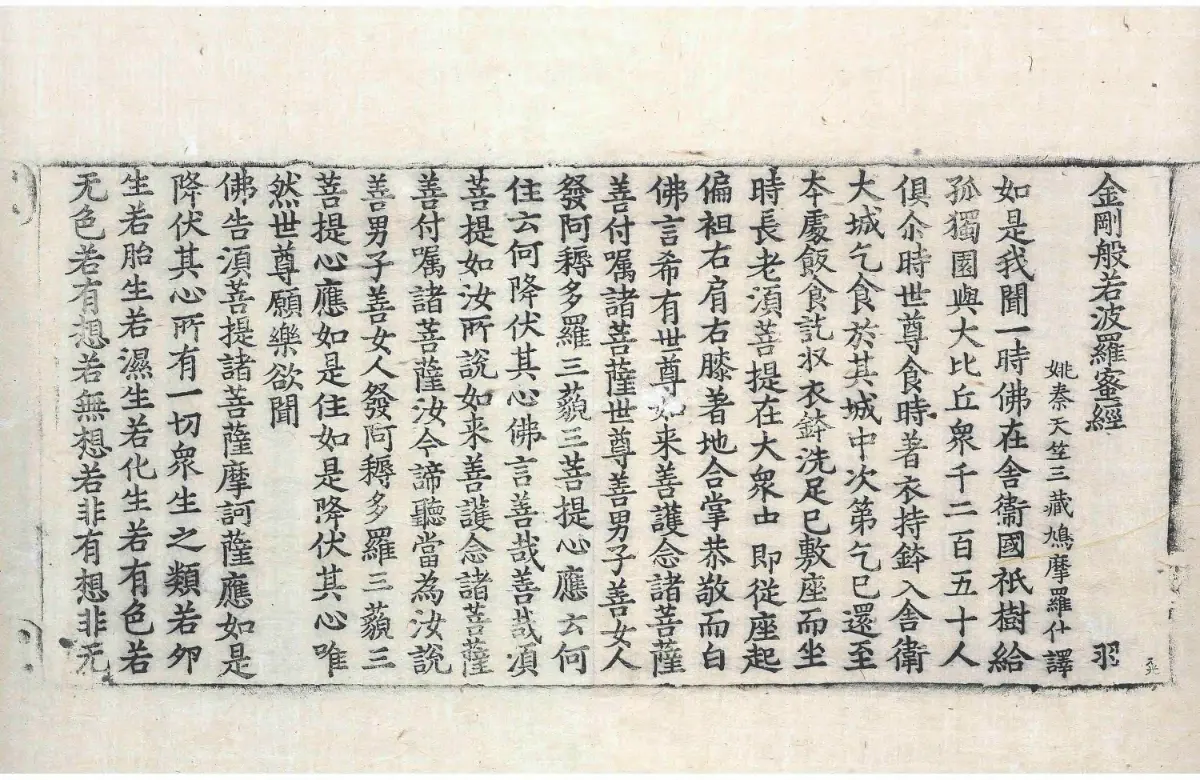 金剛般若波羅蜜經　羽
姚秦天竺三藏鳩摩羅什譯
如是我聞一時佛在舍衛國祇樹給
孤獨園與大比丘衆千二百五十人
俱尒時世尊食時著衣持鉢入舍衛
大城乞食於其城中次第乞已還至
本處飯食訖収衣鉢洗足已敷座而坐
時長老湏菩提在大衆中即從座起
偏袒右肩右膝著地合掌恭敬而白
佛言希有世尊如来善護念諸菩薩
善付嘱諸菩薩世尊善男子善女人
發阿耨多羅三藐三菩提心應云何
住云何降伏其心佛言善哉善哉湏
菩提如汝所說如来善護念諸菩薩
善付嘱諸菩薩汝今諦聽當為汝說
善男子善女人發阿耨多羅三藐三
菩提心應如是住如是降伏其心唯
然世尊願樂欲聞
佛告湏菩提諸菩薩摩訶薩應如是
降伏其心所有一切衆生之類若夘
生若胎生若濕生若化生若有色若
无色若有想若無想若非有想非无